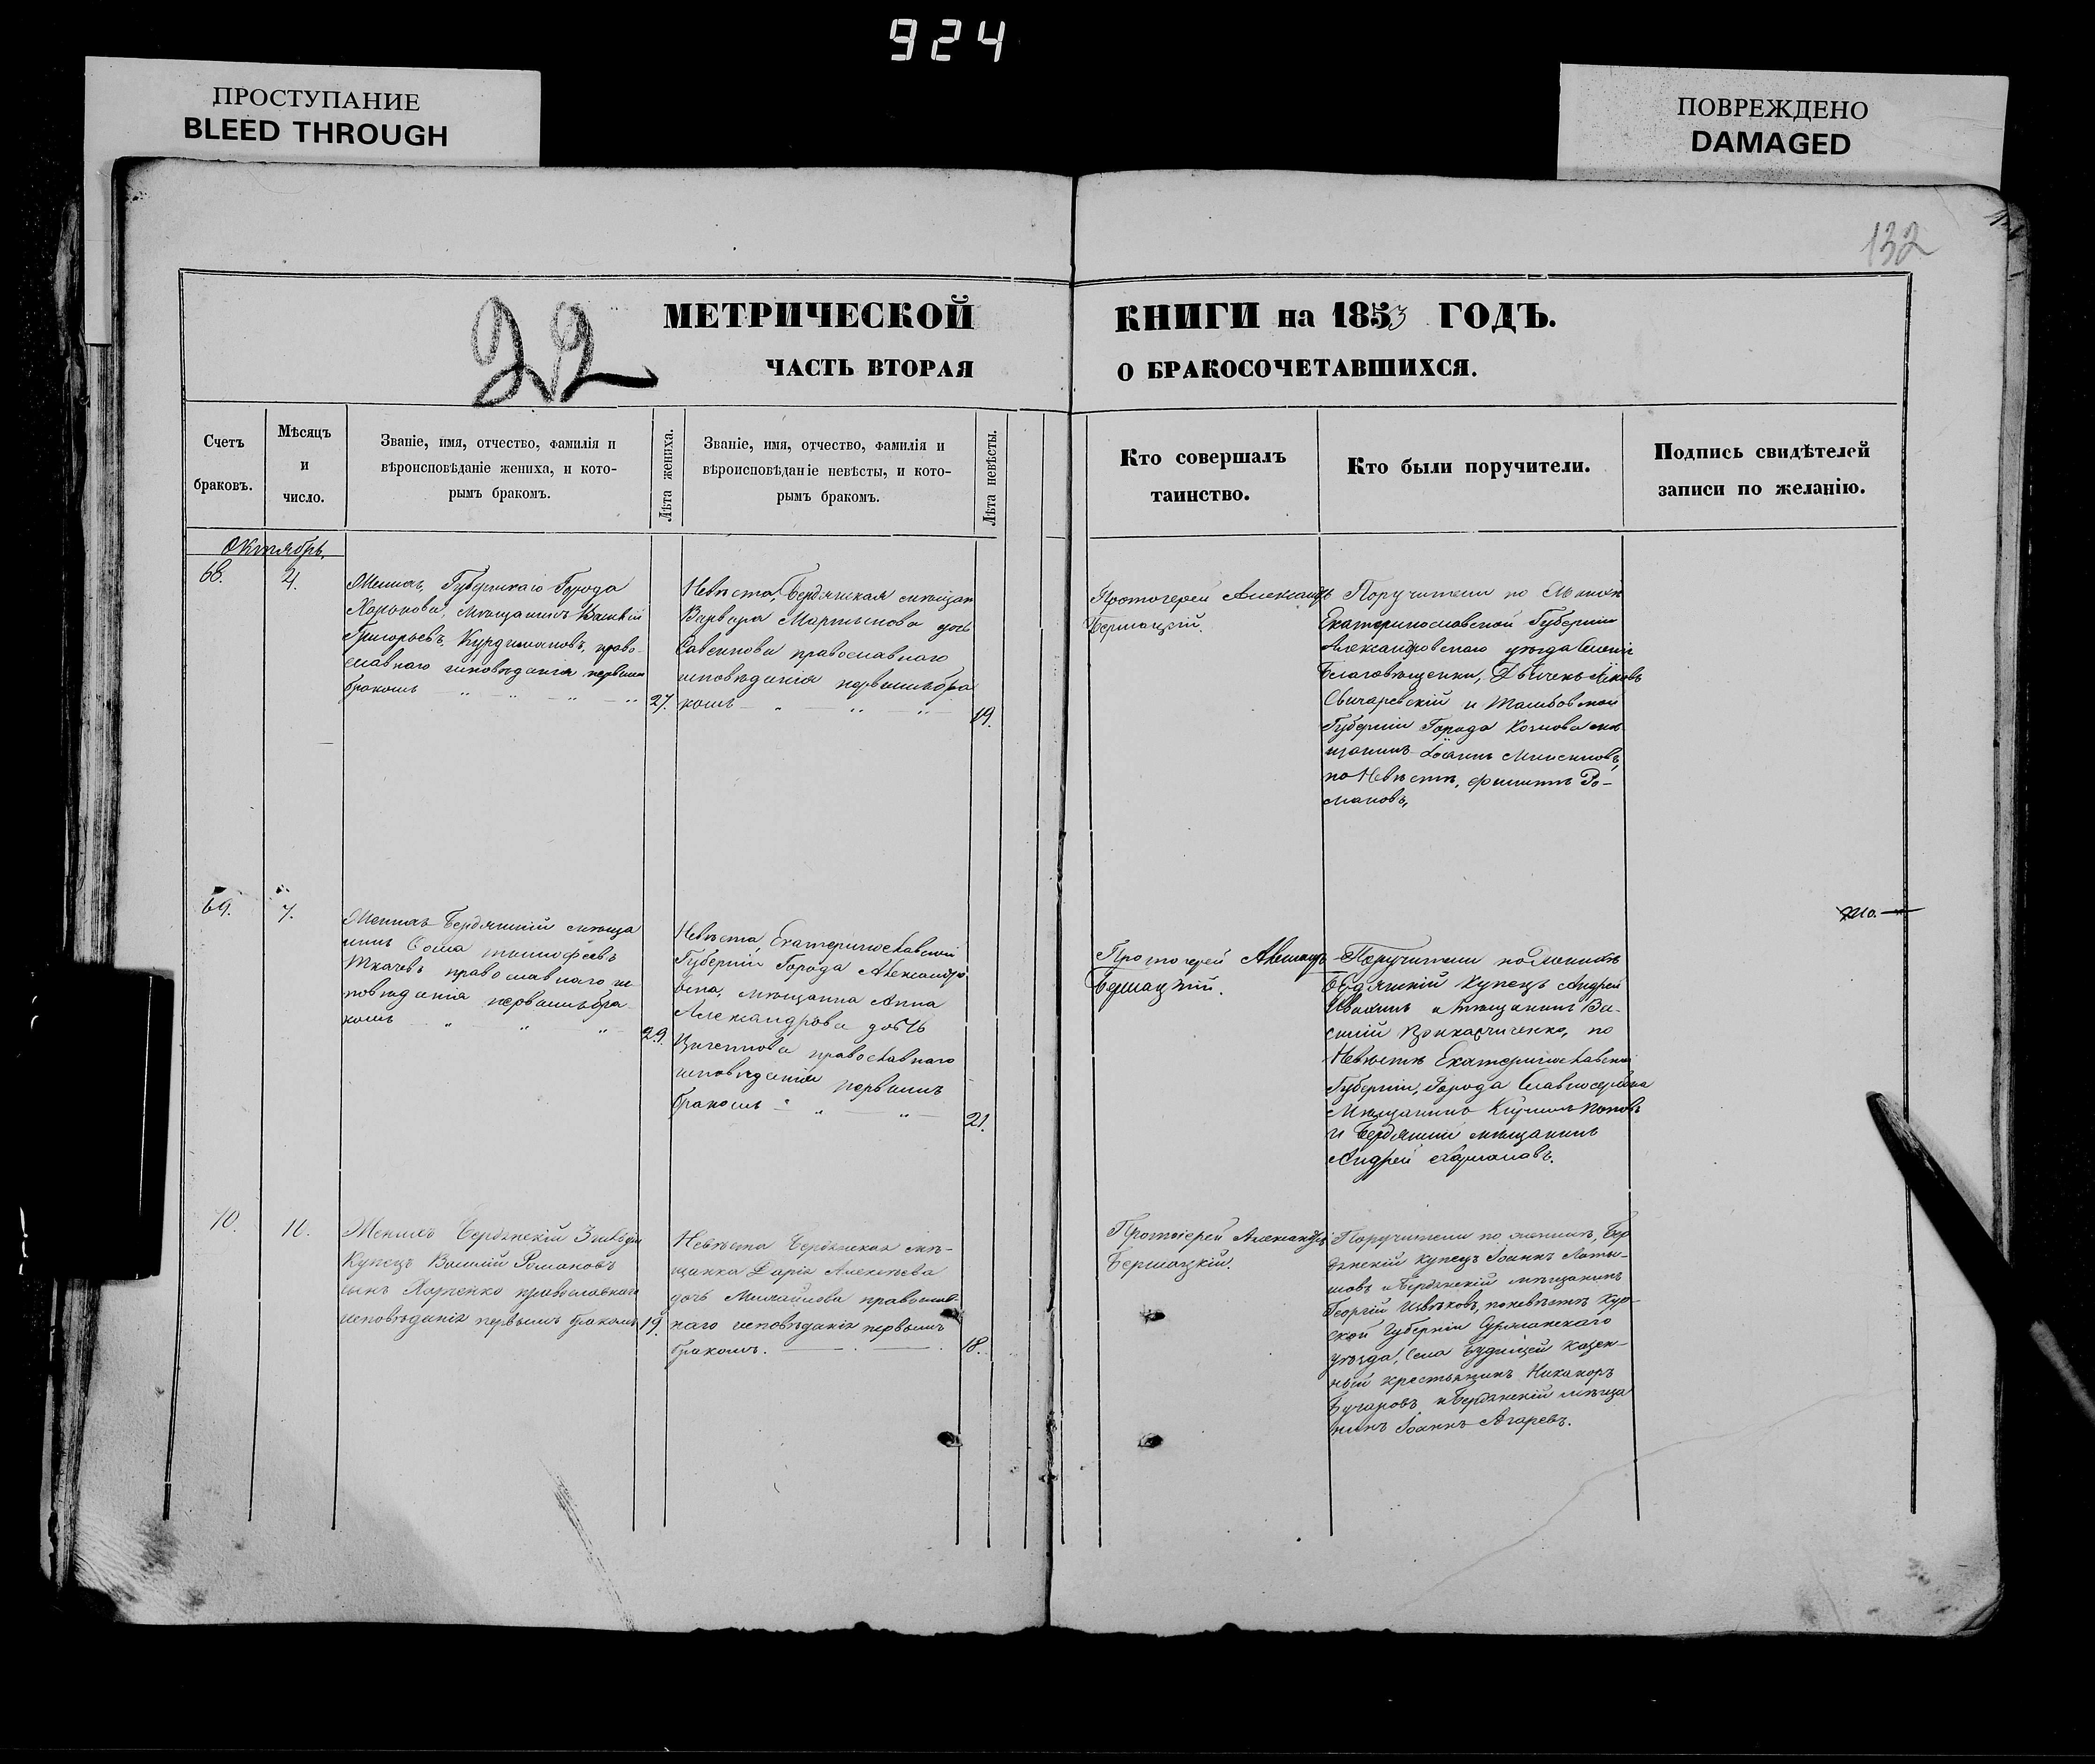 924
ПРОСТУПАНИЕ
BLEED THROUGH
ПОВРЕЖДЕНО
DAMAGED
132
22
МЕТРИЧЕСКОЙ
ЧАСТЬ ВТОРАЯ
КНИГИ на 1853 ГОДЪ.
О БРАКОСОЧЕТАВШИХСЯ.
Счетъ
браковъ.
Мѣсяцъ
и
число.
Званіе, имя, отчество, фамилія и
вѣроисповѣданіе жениха, и кото-
рымъ бракомъ.
Лѣта жениха.
Званіе, имя, отчество, фамилія и
вѣроисповѣданіе невѣсты, и кото-
рымъ бракомъ.
Лѣта невѣсты.
Кто совершалъ
таинство.
Кто были поручители.
Подпись свидѣтелей
записи по желанію.
Октябрь.
68.
4.
Женихъ, Губернскаго Города
Харькова, мѣщанинъ Василій
Григорьевъ, право-
славнаго исповѣданія первымъ
бракомъ
27.
Невѣста, Бердянская мѣщан
Варвара Мартынова дочь
Савенкова православнаго
исповѣданія первымъ бра
комъ
19.
Протоіерей Александръ
Бершацкій.
Поручители по
Екатеринославской Губерніи
Александровскаго уѣзда
Благовѣщенки,
и Тамбовской
Губерніи Города Козлова мѣ
щанинъ Іоаннъ
по Невѣстѣ, Филиппъ Ро-
мановъ,
69.
7.
Женихъ Бердянскій мѣща
нинъ Сома тимофеевъ
Ткачевъ православнаго ис
повѣданія первымъ бра-
комъ
29.
Невѣста Екатеринославской
Губерніи Города Александро
вска, мѣщанка Анна
Александрова дочь
православнаго
исповѣданія первымъ
бракомъ
21.
Протоіерей Александръ
Бершацкій.
Поручители по Женихѣ
Бердянскій Купецъ Андрей
и мѣщанинъ Ва-
силій по
Невѣстѣ Екатеринославской
Губерніи, Города Славяносербска
Мѣщанинъ Кирилъ Поповъ
и Бердянскій мѣщанинъ
Андрей
70.
10.
Женихъ Бердянскій 3 гильдіи
Купецъ Василій Романовъ
сынъ Харченко православнаго
исповѣданія первымъ бракомъ
19.
Невѣста Бердянская мѣ-
щанка Дарія Алексѣева
дочь Михайлова православ-
наго исповѣданія первымъ
бракомъ.
18.
Протоіерей Александръ
Бершацкій.
Поручители по женихѣ, Бер
дянскій купецъ Іоаннъ Латы-
шовъ и Бердянскій мѣщанинъ
Георгій Цвѣтковъ, по невѣстѣ Кур-
ской Губерніи Суджанскаго
уѣзда, Села казен-
ный крестьянинъ Никаноръ
и Бердянскій мѣща
нинъ Іоаннъ Агаревъ.